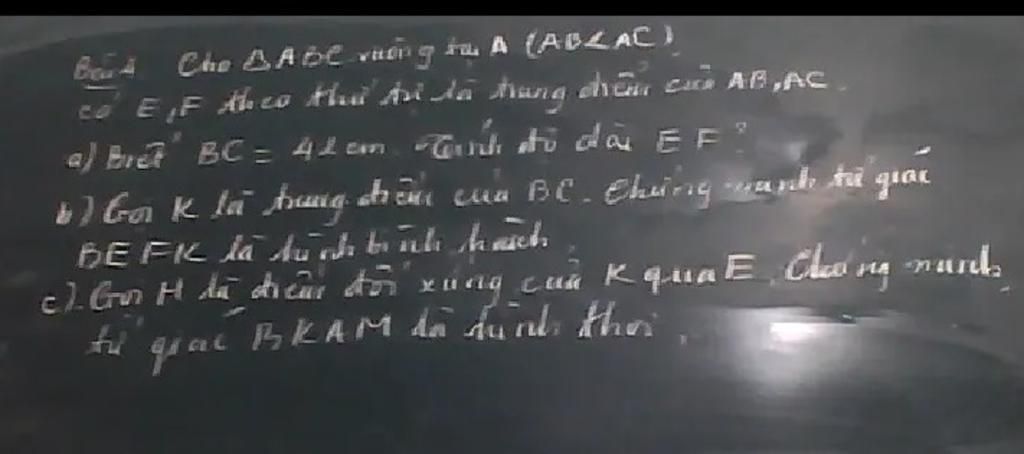 Bài 1 Cho ΔABC vuông tại A (AB<AC)
có E,F theo thứ tự là trung điểm của AB,AC.
a) Biết BC = 42cm. Tính độ dài EF?
b) Gọi K là trung điểm của BC. Chứng minh tứ giác
BEFK là hình bình hành.
c). Gọi H là điểm đối xứng của K qua E. Chứng minh
tứ giác BKAM là hình thoi.